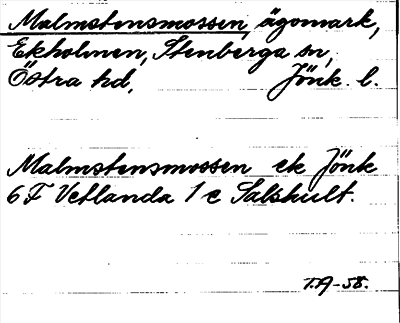 Malmstensmossen, ägomark,
Ekholmen, Stenberga sn,
Östra hd, Jönk l.
Malmstensmossen ek Jönk
6 F Vetlanda 1 e Salshult.
T.A-58.